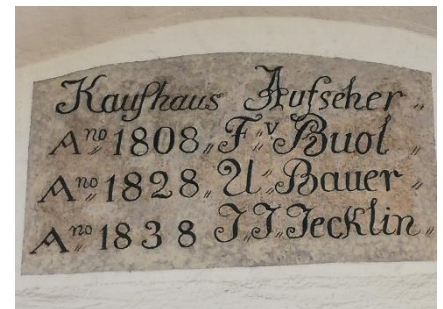 Kaufhaus Aufseher „
Aⁿᵒ 1808 „ F „ v Buol „
Aⁿᵒ 1828 „ U „ Bauer „
Aⁿᵒ 1838 J „ J „ Jecklin „